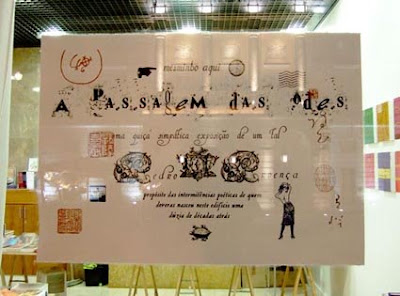 mesmíssimo aqui
A Passagem das Odes
uma quiçá simpática exposição de um tal
Pedro Proença
propósito das intermitências poéticas de quem
deveras nasceu neste edifício uma
dúzia de décadas atrás